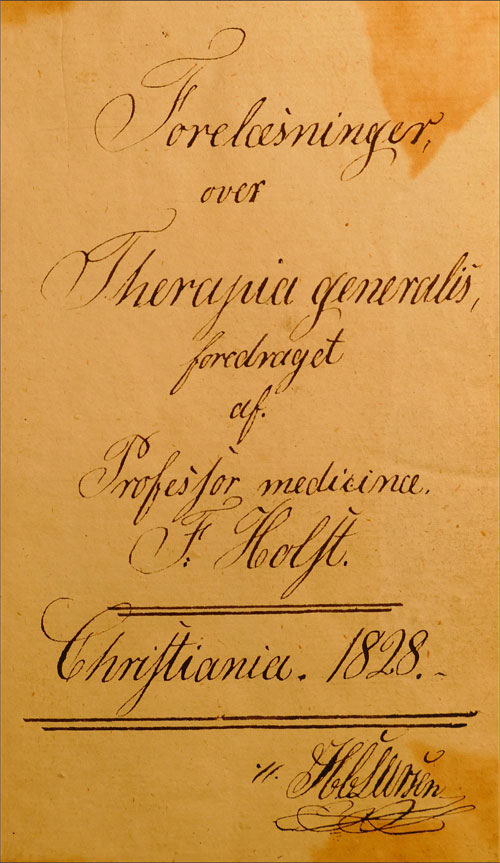 Forelæsninger,
over
Therapia generalis,
foredraget
af.
Professor medicinæ.
F. Holst.
Christiania. 1828.-